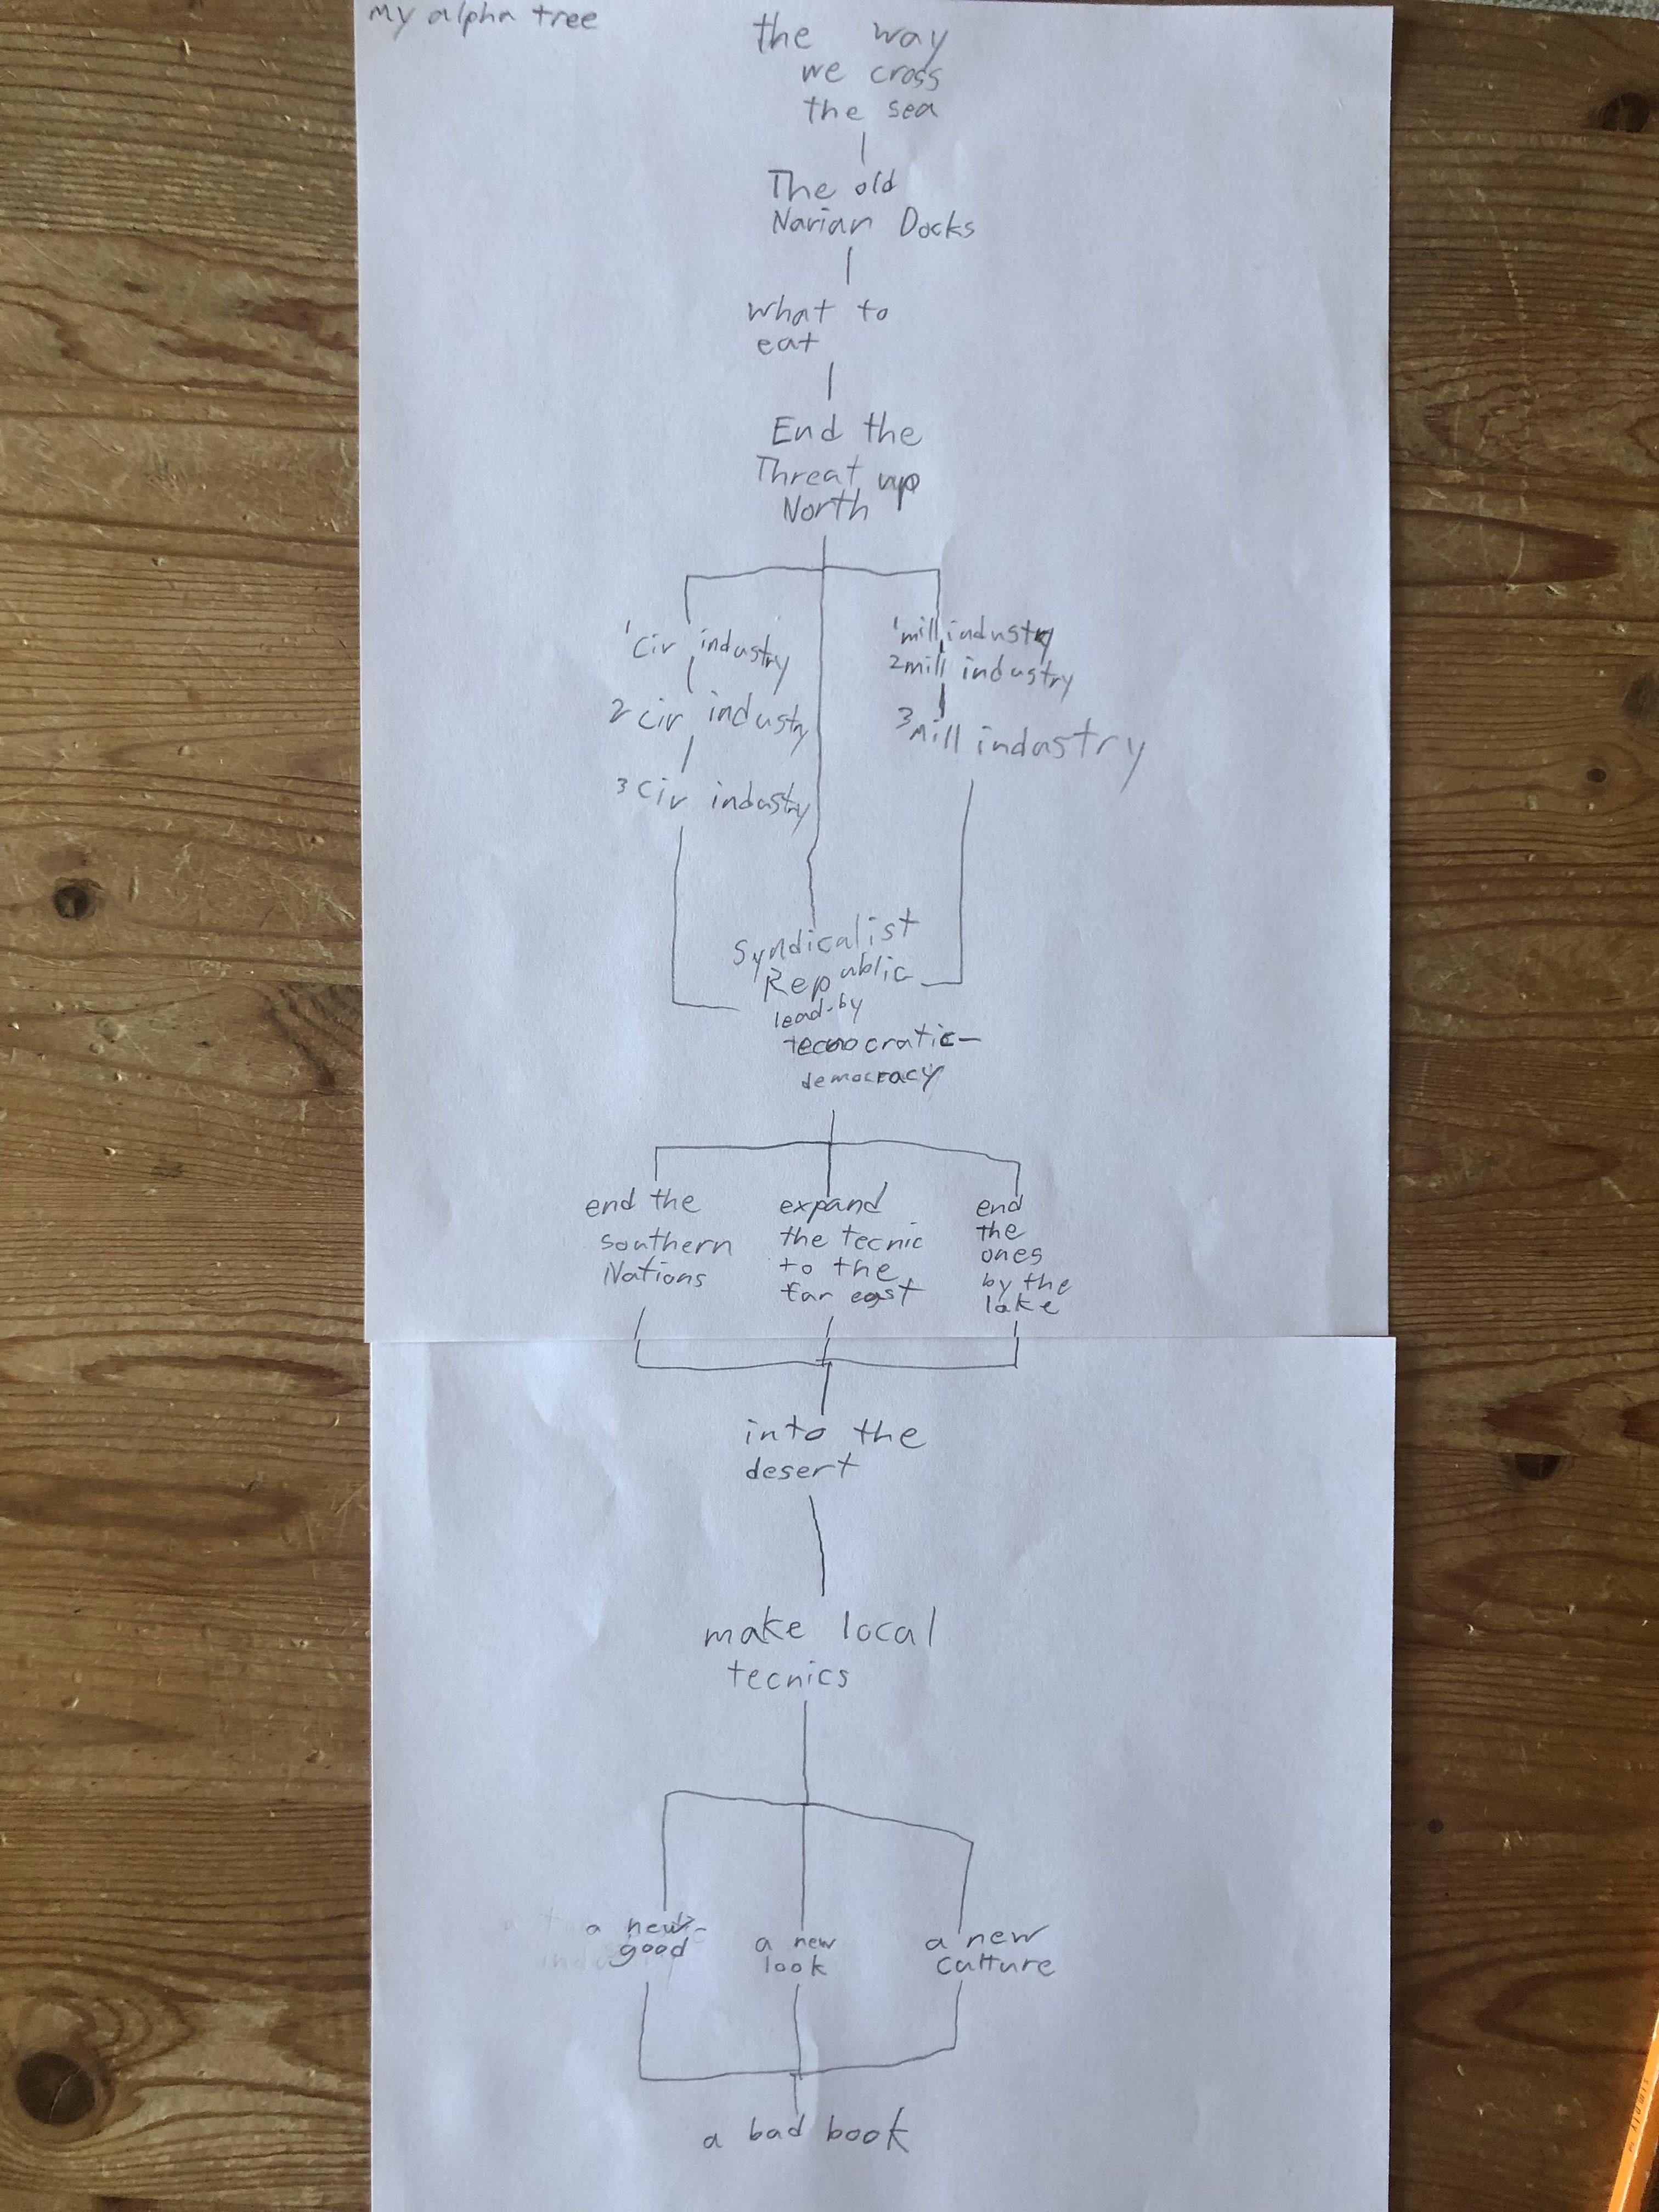 My alpha tree
the way
we cross
the sea
The old
Narian Docks
what to
eat
End the
Threat up
North
1 Civ industry
2 civ industry
3 Civ industry
1 mill industry
2 mill industry
3 Mill industry
Syndicalist
Republic
lead-by
tecnocratic-
democracy
end the
southern
Nations
expand
the tecnic
to the
far east
end
the
ones
by the
lake
into the
desert
make local
tecnics
a new
good
a new
look
a new
culture
a bad book